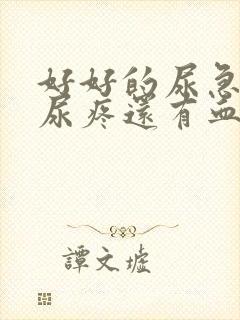 好好的尿急
尿疼還有血
譚文墟